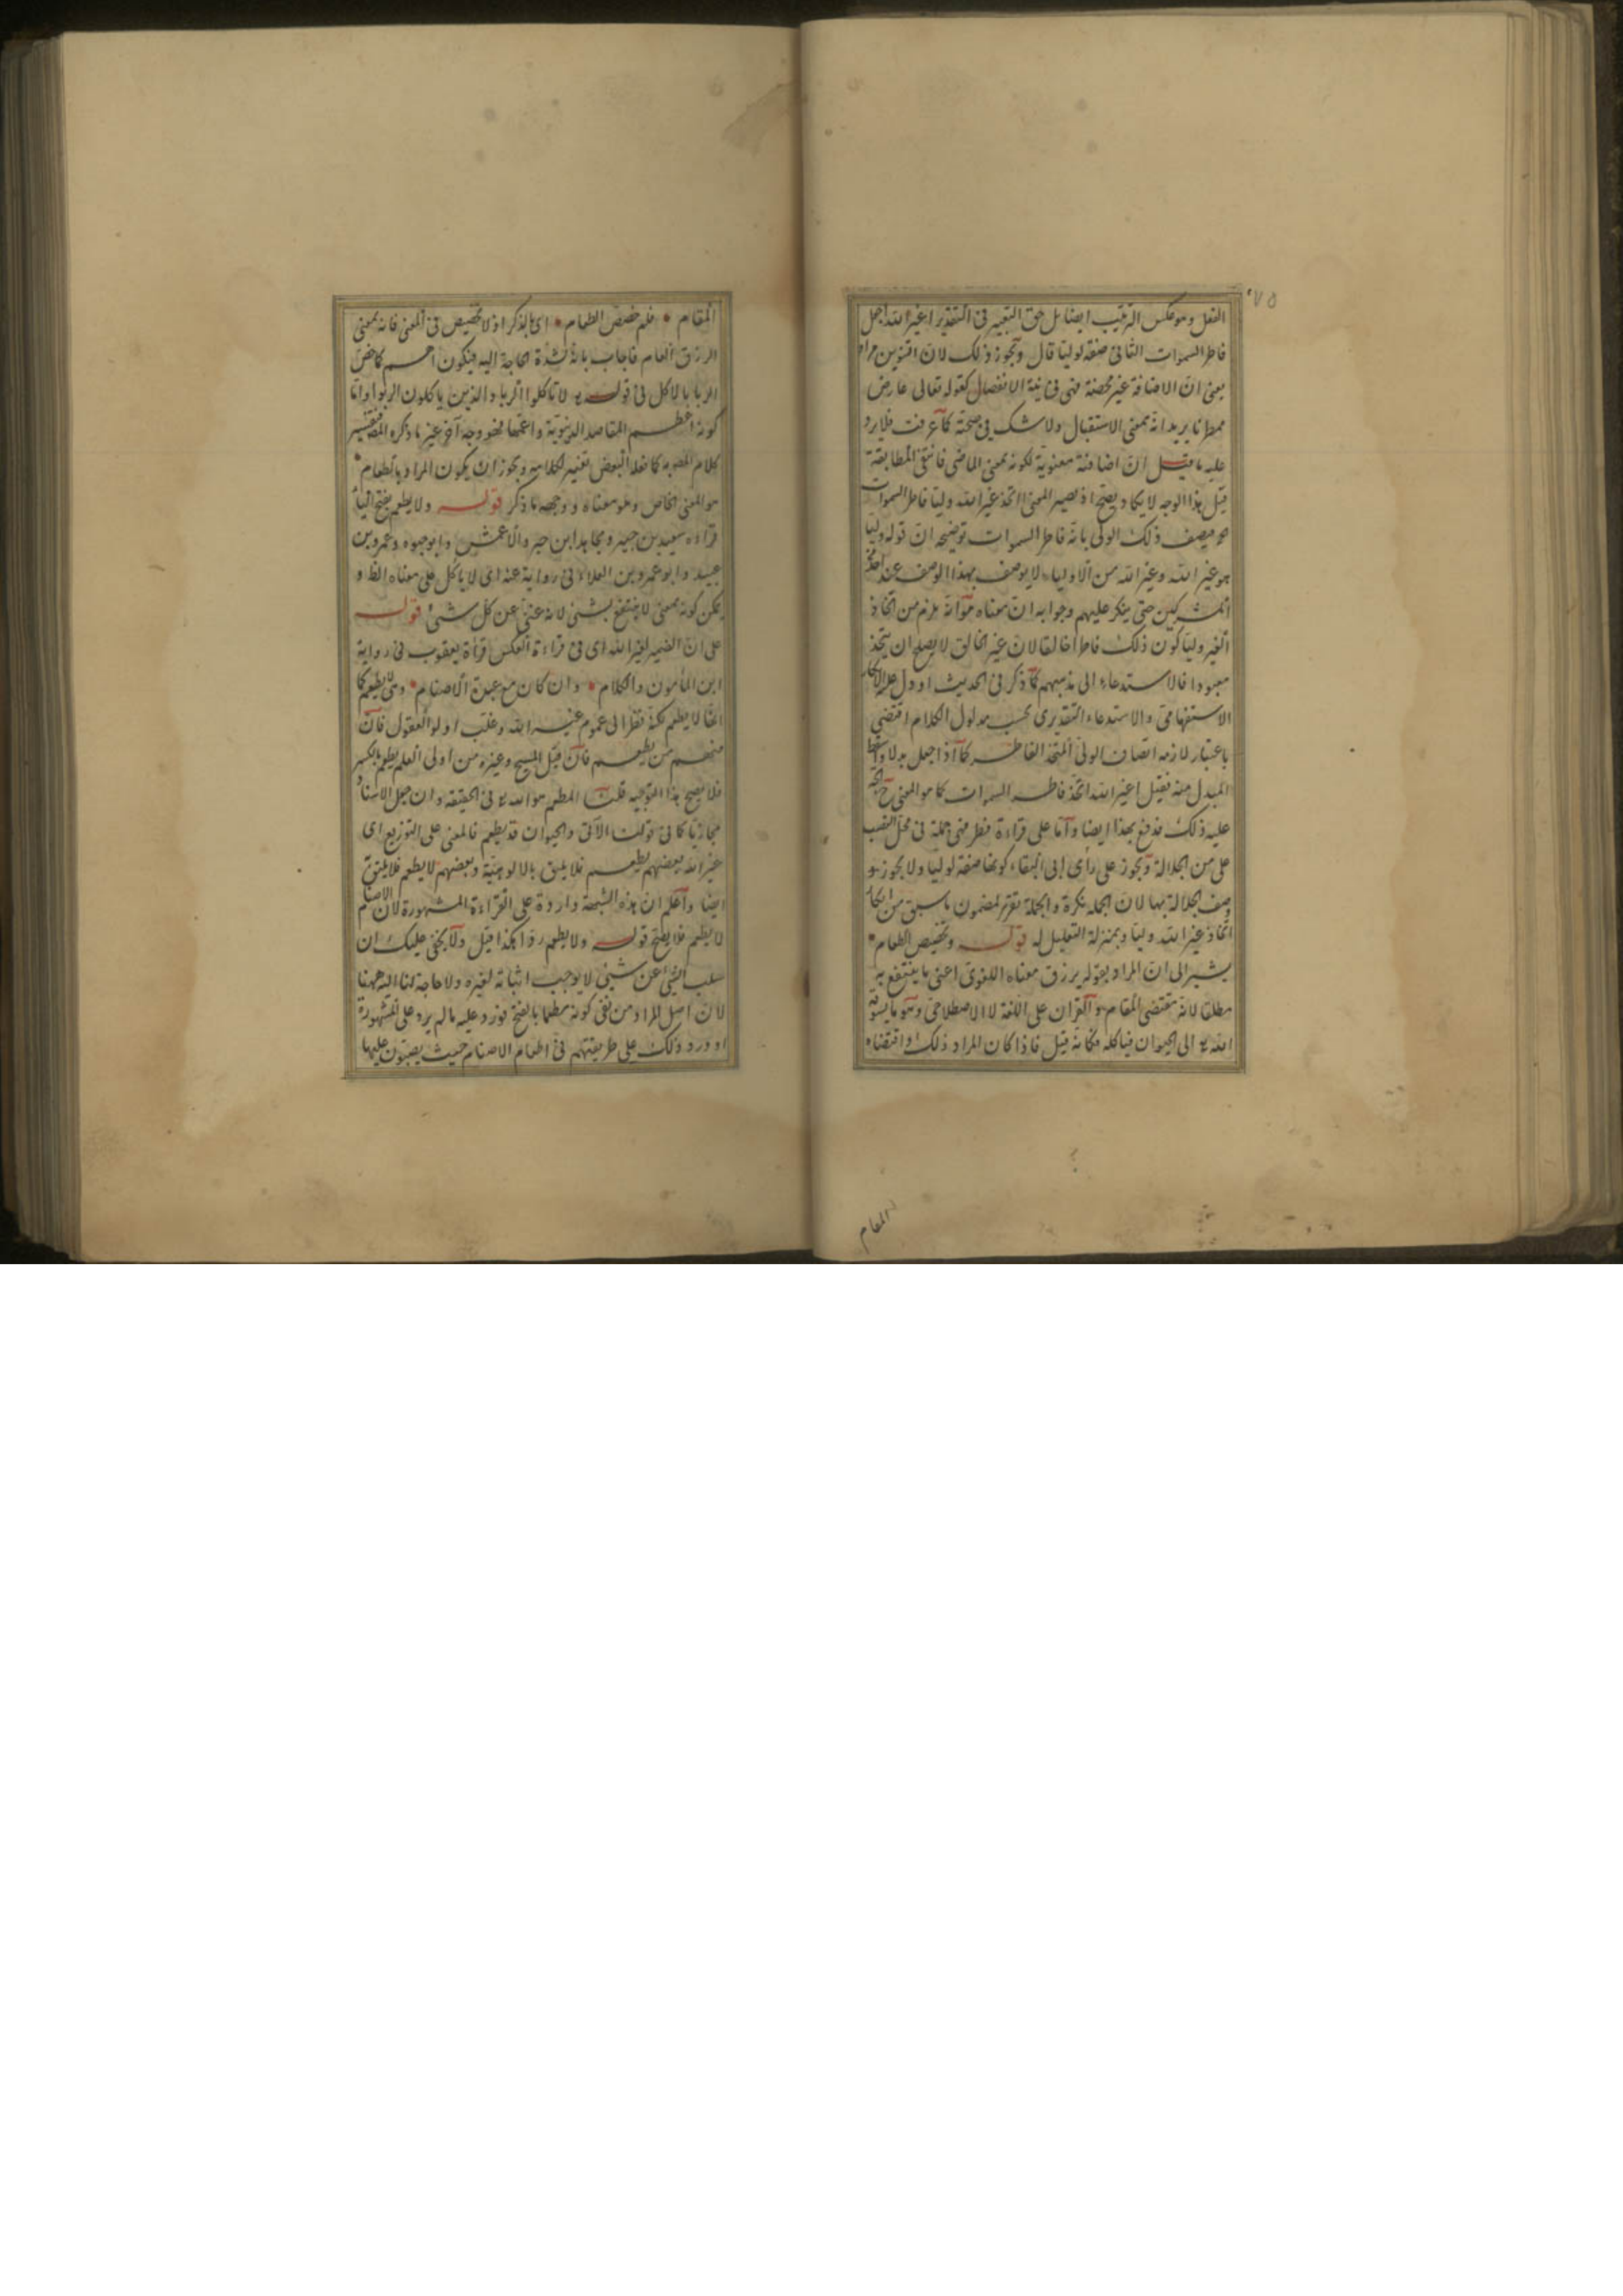 ٧٥
الفعل وهو عكس الترتيب ايضا بل حق التعبير في التقدير اغير الله اجعل
فاطر السموات الثاني صفة لوليا قال ويجوز ذلك لان التنوين مراد
يعني ان الاضافة غير محضة فهي في نية الانفصال كقوله تعالى عارض
ممطرنا يريد انه بمعنى الاستقبال ولا شك في صحته كما عرفت فلا يرد
عليه ما قيل ان اضافته معنوية لكونه بمعنى الماضي فانتفى المطابقة
قيل هذا الوجه لا يكاد يصح اذ يصير المعنى ااتخذ غير الله وليا فاطر السموات
فيصف ذلك الولي بانه فاطر السموات توضيحه ان قوله وليا
هو غير الله وغير الله من الاولياء لا يوصف بهذا الوصف عند احد
المشركين حتى ينكر عليهم وجوابه ان معناه هو انه يلزم من اتخاذ
الغير وليا كون ذلك فاطرا خالقا لان غير الخالق لا يصلح ان يتخذ
معبودا فالاستدعاء الى مذهبهم كما ذكر في الحديث او دل عليه الانكار
الاستفهامي والاستدعاء التقديري بحسب مدلول الكلام اقتضى
باعتبار لازمه اتصاف الولي المتخذ الفاطر كما اذا جعل بدلا واسقط
المبدل منه فقيل اغير الله اتخذ فاطر السموات كما هو المعنى
عليه ذلك فدفع بهذا ايضا واما على قراءة فطر فهي جملة في محل النصب
على من الجلالة ويجوز على رأى ابي البقاء كونها صفة لوليا ولا يجوز
وصف الجلالة بها لان الجملة نكرة والجملة تقرير لمضمون ما سبق من انكار
اتخاذ غير الله وليا وبمنزلة التعليل له قوله وتخصيص الطعام
يشير الى ان المراد بقوله يرزق معناه اللغوي اعني ما ينتفع به
مطلقا لانه مقتضى المقام والقران على اللغة لا الاصطلاحي وهو ما يسوقه
الله تع الى الحيوان فياكله فكانه قيل فاذا كان المراد ذلك واقتضاه
المقام
المقام فلم خصص الطعام اى بالذكر اذ لا تخصيص في المعنى فانه بمعنى
الرزق العام فاجاب بانه لشدة الحاجة اليه فيكون اهم كما خص
الربا بالاكل في قوله تع لا تاكلوا الربا والذين ياكلون الربوا واما
كونه اعظم المقاصد الدنيوية واعمها فهو وجه آخر غير ما ذكره المصـ فتفسير
كلام المصـ به كما فعله البعض تغيير لكلامه ويجوز ان يكون المراد بالطعام
هو المعنى الخاص وهو معناه ووجهه ما ذكر قوله ولا يطعم بفتح الياء
قراءه سعيد بن جبير ومجاهد ابن جبر والاعمش وابو حيوه وعمرو بن
عبيد وابو عمرو بن العلاء في رواية عنه اى لا ياكل على معناه الظ و
يمكن كونه بمعنى لا ينتفع بشئ لانه غني عن كل شئ قوله
على ان الضمير لغير الله اى في قراءة العكس قرأة يعقوب في رواية
ابن المأمون والكلام وان كان مع عبدة الاصنام وهي لا يطعم كما
انها لا يطعم لكنه نظر الى عموم غير الله وغلب اولو العقول فان
منهم من يطعم فان قيل المسيح وغيره من اولى العلم يطعم بالكسر
فلا يصح هذا التوجيه قلت المطعم هو الله تع في الحقيقة وان جعل الاسناد
مجازيا كما في قولنا الآتي والحيوان قد يطعم فالمعنى على التوزيع اى
غير الله بعضهم يطعم فلا يليق بالالوهية وبعضهم لا يطعم فلا يليق
ايضا واعلم ان هذه الشبهة واردة على القراءة المشهورة لان الاصنام
لا يطعم فلا يصح قوله ولا يطعم ردا هكذا قيل ولا يخفى عليك ان
سلب الشئ عن شئ لا يوجب اثباته لغيره ولا حاجة لنا اليه ههنا
لان اصل المراد من نفى كونه مطعما بالفتح فورد عليه ما لم يرد على المشهورة
او ورد ذلك على طريقتهم في اطعام الاصنام حيث يصبون عليها